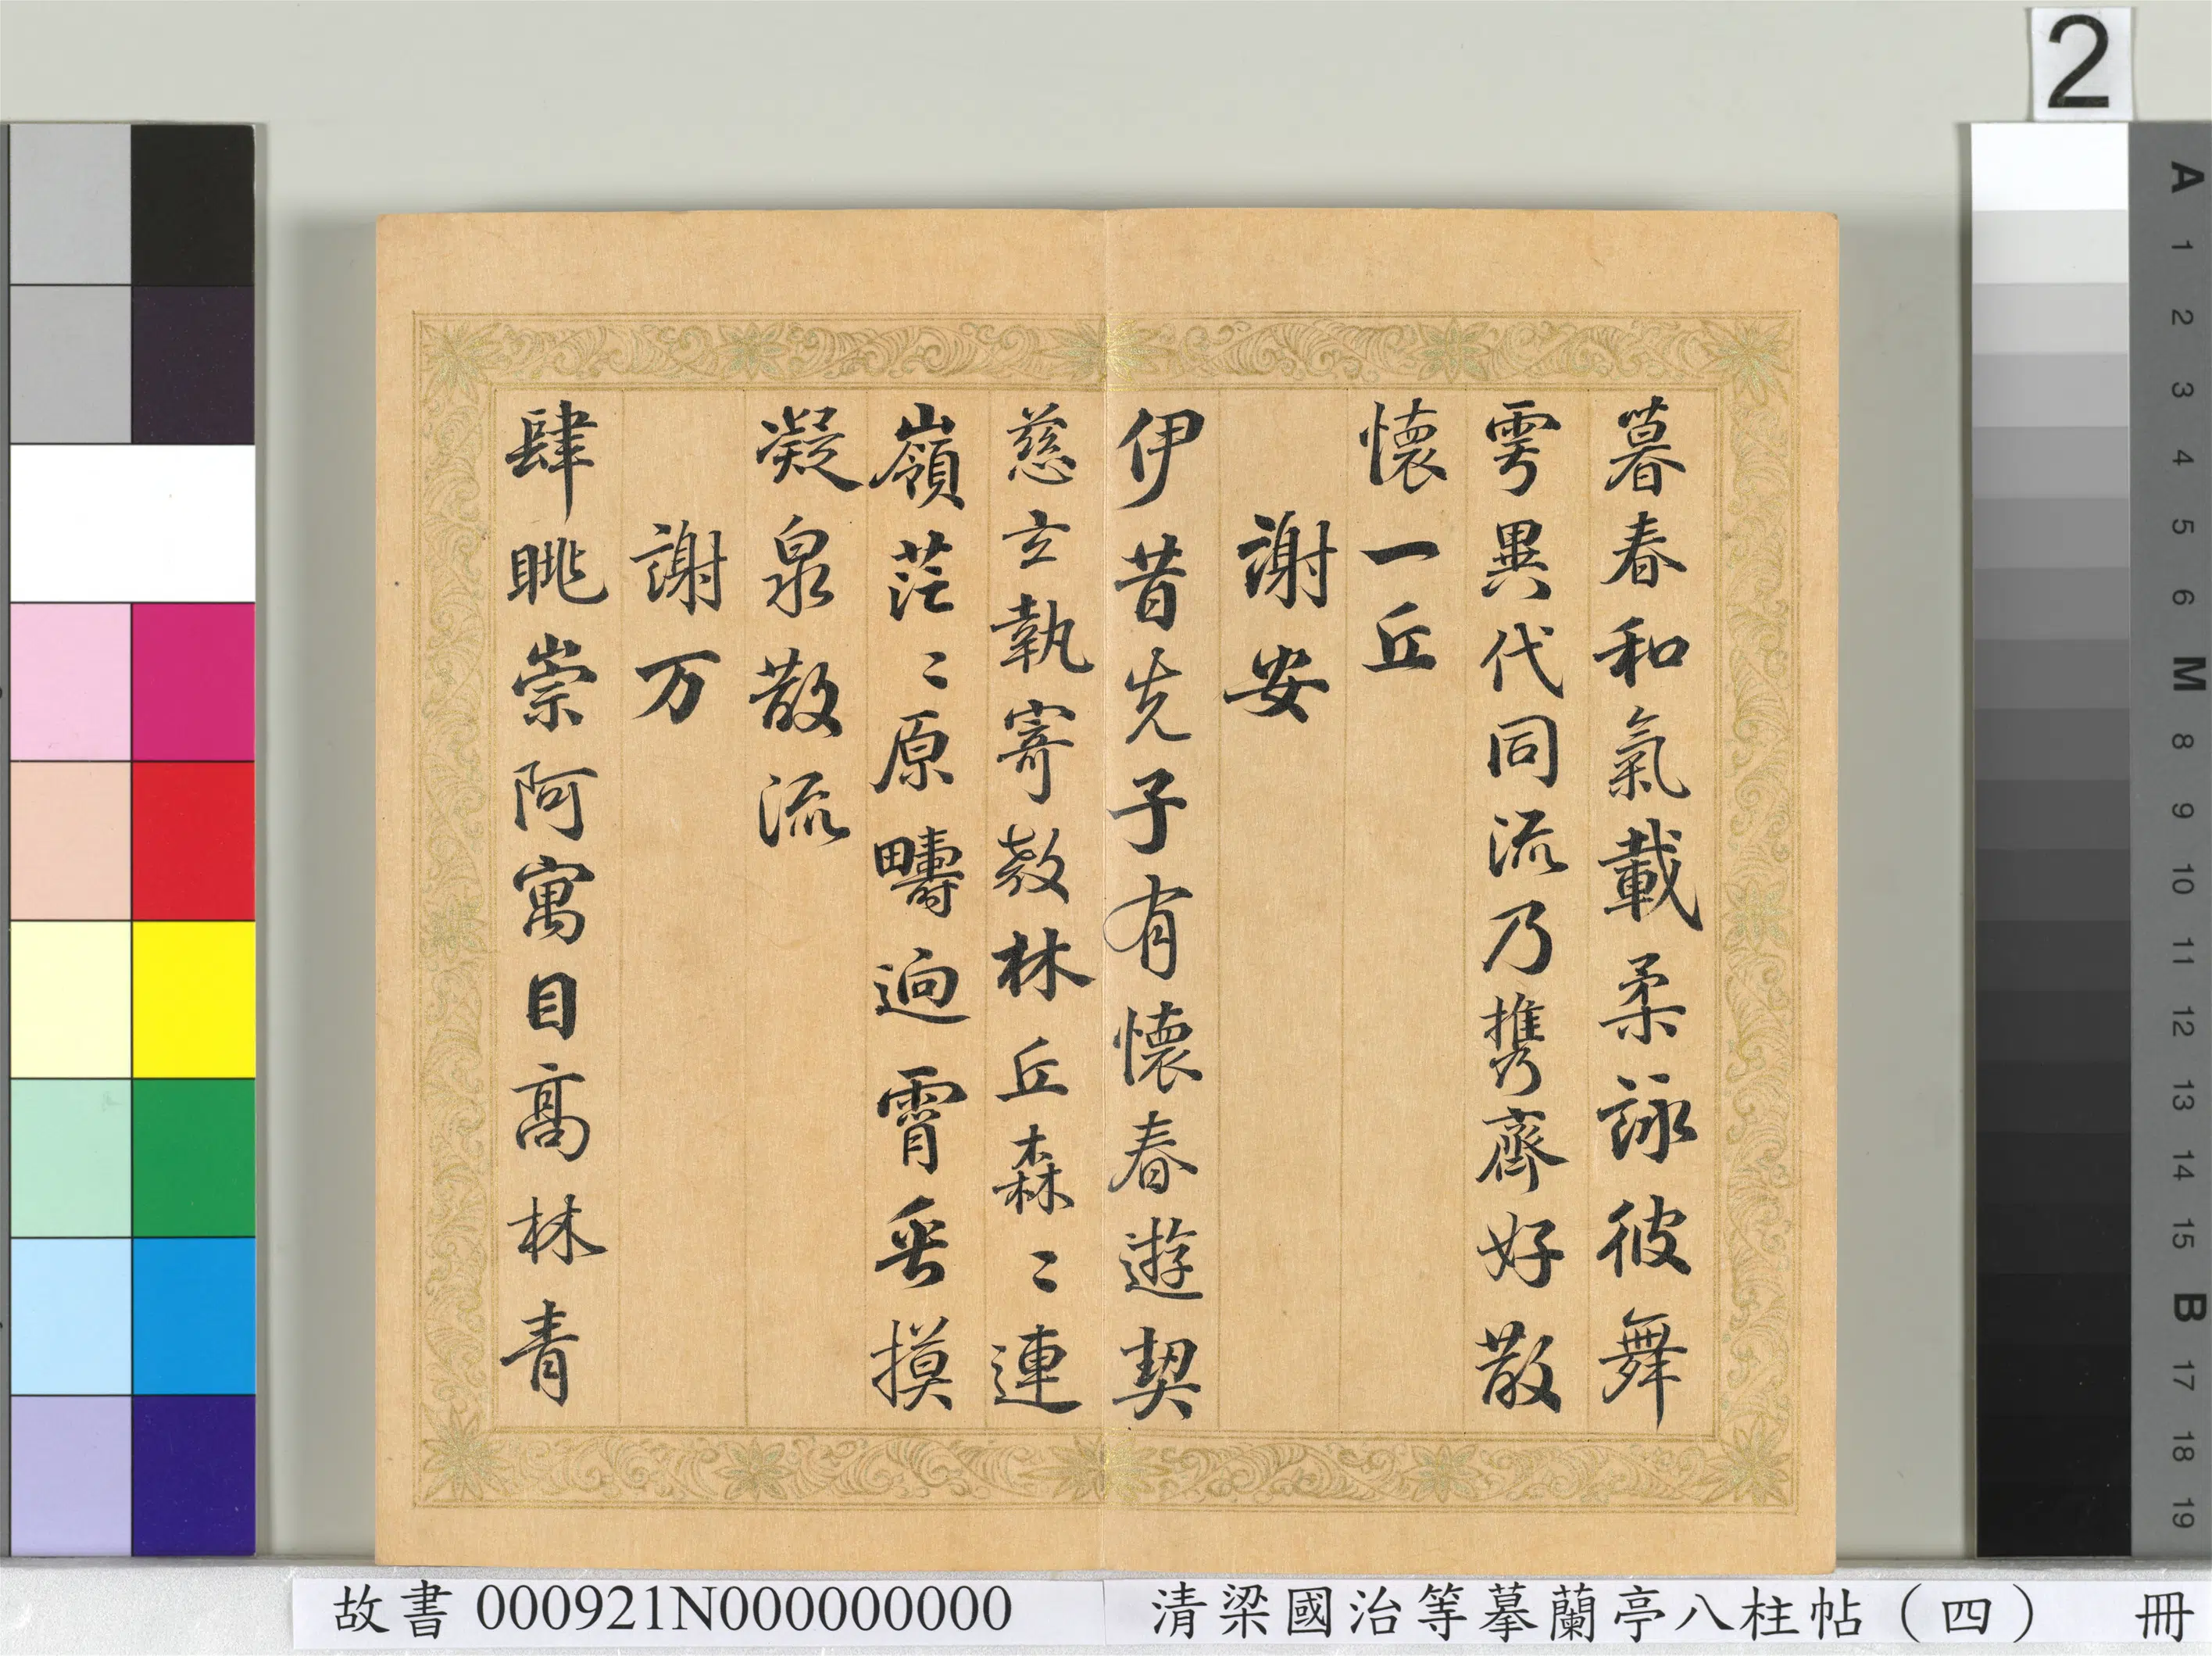 2
暮春和氣載柔詠彼舞
雩異代同流乃攜齊好散
懷一丘
謝安
伊昔先子有懷春遊契
茲言執寄敖林丘森〻連
嶺茫〻原疇逈霄垂
凝泉散流
謝万
肆眺崇阿寓目高林青
A 1 2 3 4 5 6 M 8 9 10 11 12 13 14 15 B 17 18 19
故書 000921N000000000 清梁國治等摹蘭亭八柱帖（四） 冊